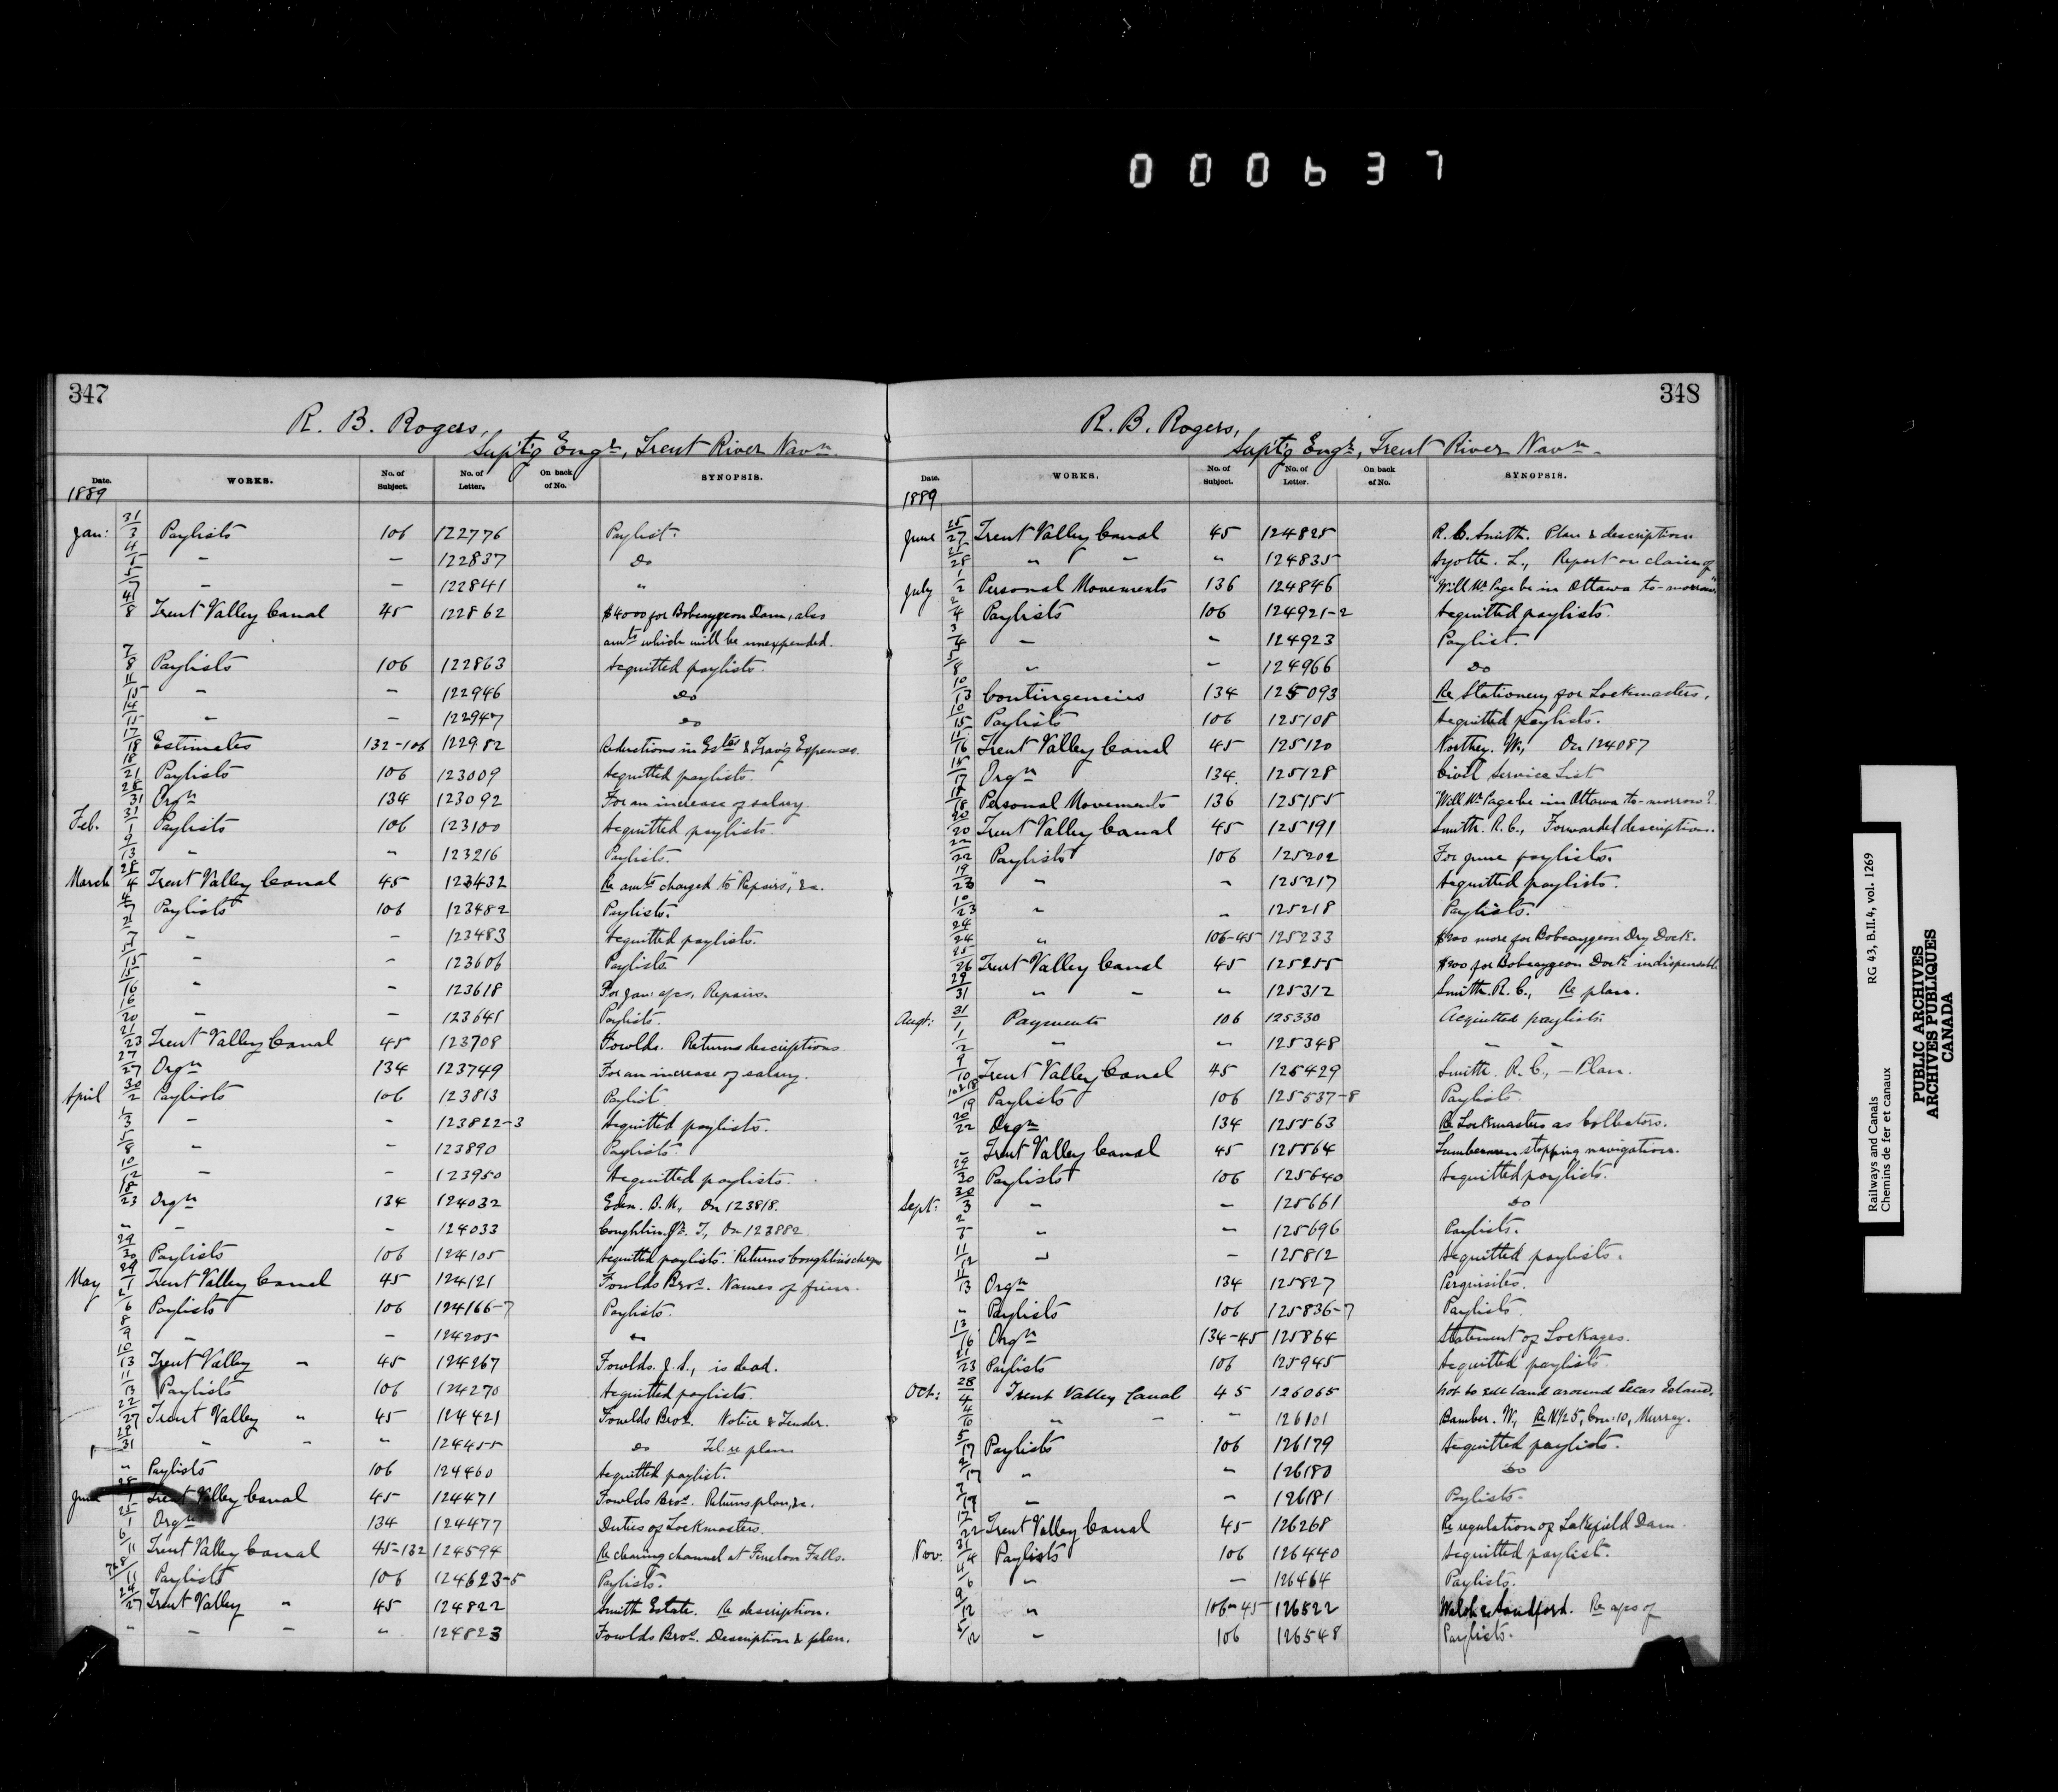 000637
347
R. B. Rogers,
Supt'g Engr, Trent River Navn.
Date. WORKS. No. of Subject. No. of Letter. On back of No. SYNOPSIS.
1889
Jan: 31/3 Paylists 106 122776 Paylist.
4/5 " — 122837 Do
5/7 " — 122841 "
4/8 Trent Valley Canal 45 122862 $4000 for Bobcaygeon Dam, also
amts which will be unexpended.
7/8 Paylists 106 122863 Acquitted paylists.
11/15 " — 122946 Do
14/15 " — 122947 Do
17/18 Estimates 132-106 122982 Reductions in Estes & Trav'g Expenses.
18/21 Paylists 106 123009 Acquitted paylists.
28/31 Orgn 134 123092 For an increase of salary.
Feb. 31/1 Paylists 106 123100 Acquitted paylists.
9/13 " " 123216 Paylists.
March 28/4 Trent Valley Canal 45 123432 Re amts charged to "Repairs," &c.
4/7 Paylists 106 123482 Paylists.
2/7 " — 123483 Acquitted paylists.
5/15 " — 123606 Paylists.
15/16 " — 123618 For Jan: a/cs, Repairs.
16/20 " — 123645 Paylists.
21/23 Trent Valley Canal 45 123708 Fowlds. Returns descriptions
27/27 Orgn 134 123749 For an increase of salary.
April 30/2 Paylists 106 123813 Paylist.
1/3 " " 123822-3 Acquitted paylists.
5/8 " — 123890 Paylists.
10/12 " — 123950 Acquitted paylists.
18/23 Orgn 134 124032 Eden. B. H, On 123818.
" " — 124033 Coughlin, Jr. T, On 123882
29/30 Paylists 106 124105 Acquitted paylists. Returns Coughlin's cheque
May 29/1 Trent Valley Canal 45 124121 Fowlds Bros. Names of firm.
2/6 Paylists 106 124166-7 Paylists.
8/9 " — 124205 "
10/13 Trent Valley " 45 124267 Fowlds. J. S., is dead.
11/13 Paylists 106 124270 Acquitted paylists.
22/27 Trent Valley " 45 124421 Fowlds Bros. Notice & Tender.
29/31 " " " 124455 Do Tel re plan
" Paylists 106 124460 Acquitted paylist.
June 28/1 Trent Valley Canal 45 124471 Fowlds Bros. Returns plan, &c.
25/1 Orgn 134 124477 Duties of Lockmasters.
6/11 Trent Valley Canal 45-132 124594 Re clearing channel at Fenelon Falls.
7&8/11 Paylists 106 124623-5 Paylists.
24/27 Trent Valley " 45 124822 Smith Estate. Re description.
" " " " 124823 Fowlds Bros. Description & plan.
348
R. B. Rogers,
Supt'g Engr, Trent River Navn.
Date. WORKS. No. of Subject. No. of Letter. On back of No. SYNOPSIS.
1889
June 25/27 Trent Valley Canal 45 124825 R. C. Smith. Plan & description
25/28 " " " 124835 Ayotte. L., Report on claim of
July 1/2 Personal Movements 136 124846 "Will Mr Page be in Ottawa to-morrow"
2/4 Paylists 106 124921-2 Acquitted paylists.
3/4 " " 124923 Paylist.
5/8 " — 124966 Do
10/13 Contingencies 134 125093 Re Stationery for Lockmasters,
10/15 Paylists 106 125108 Acquitted paylists.
11/16 Trent Valley Canal 45 125120 Northey. W., On 124087
15/17 Orgn 134. 125128 Civil Service List
17/18 Personal Movements 136 125155 "Will Mr Page be in Ottawa to-morrow?
20/20 Trent Valley Canal 45 125191 Smith. R. C., Forwarded description.
22/22 Paylists 106 125202 For June paylists.
19/23 " " 125217 Acquitted paylists.
10/23 " " 125218 Paylists.
24/24 " 106-45 125233 $200 more for Bobcaygeon Dry Dock.
25/26 Trent Valley Canal 45 125255 $200 for Bobcaygeon Dock indispensable
29/31 " " " 125312 Smith. R. C., Re plan.
Augt: 31/1 Payments 106 125330 Acquitted paylists.
1/2 " " 125348 " "
9/10 Trent Valley Canal 45 125429 Smith. R. C., — Plan.
10&18/19 Paylists 106 125537-8 Paylists.
20/22 Orgn 134 125563 Re Lockmasters as Collectors.
" Trent Valley Canal 45 125564 Lumbermen stopping navigation.
29/30 Paylists 106 125640 Acquitted paylists.
Sept: 30/3 " — 125661 Do
2/5 " — 125696 Paylists.
11/12 " — 125812 Acquitted paylists.
11/13 Orgn 134 125827 Perquisites.
" Paylists 106 125836-7 Paylists
13/16 Orgn 134-45 125864 Statement of Lockages.
21/23 Paylists 106 125945 Acquitted paylists
Oct: 28/4 Trent Valley Canal 45 126065 Not to sell land around Island.
4/10 " " " 126101 Bamber. W, Re N1/25, Con: 10, Murray.
5/17 Paylists 106 126179 Acquitted paylists.
2/17 " " 126180 Do
7/17 " — 126181 Paylists.
17/22 Trent Valley Canal 45 126268 Re regulation of Lakefield Dam.
Nov. 31/4 Paylists 106 126440 Acquitted paylist.
4/6 " — 126464 Paylists.
9/12 " 106-45 126522 Walsh & Sandford. Re a/cs of
5/12 " 106 126548 Paylists.
Railways and Canals RG 43, B.II.4, vol. 1269
Chemins de fer et canaux
PUBLIC ARCHIVES
ARCHIVES PUBLIQUES
CANADA